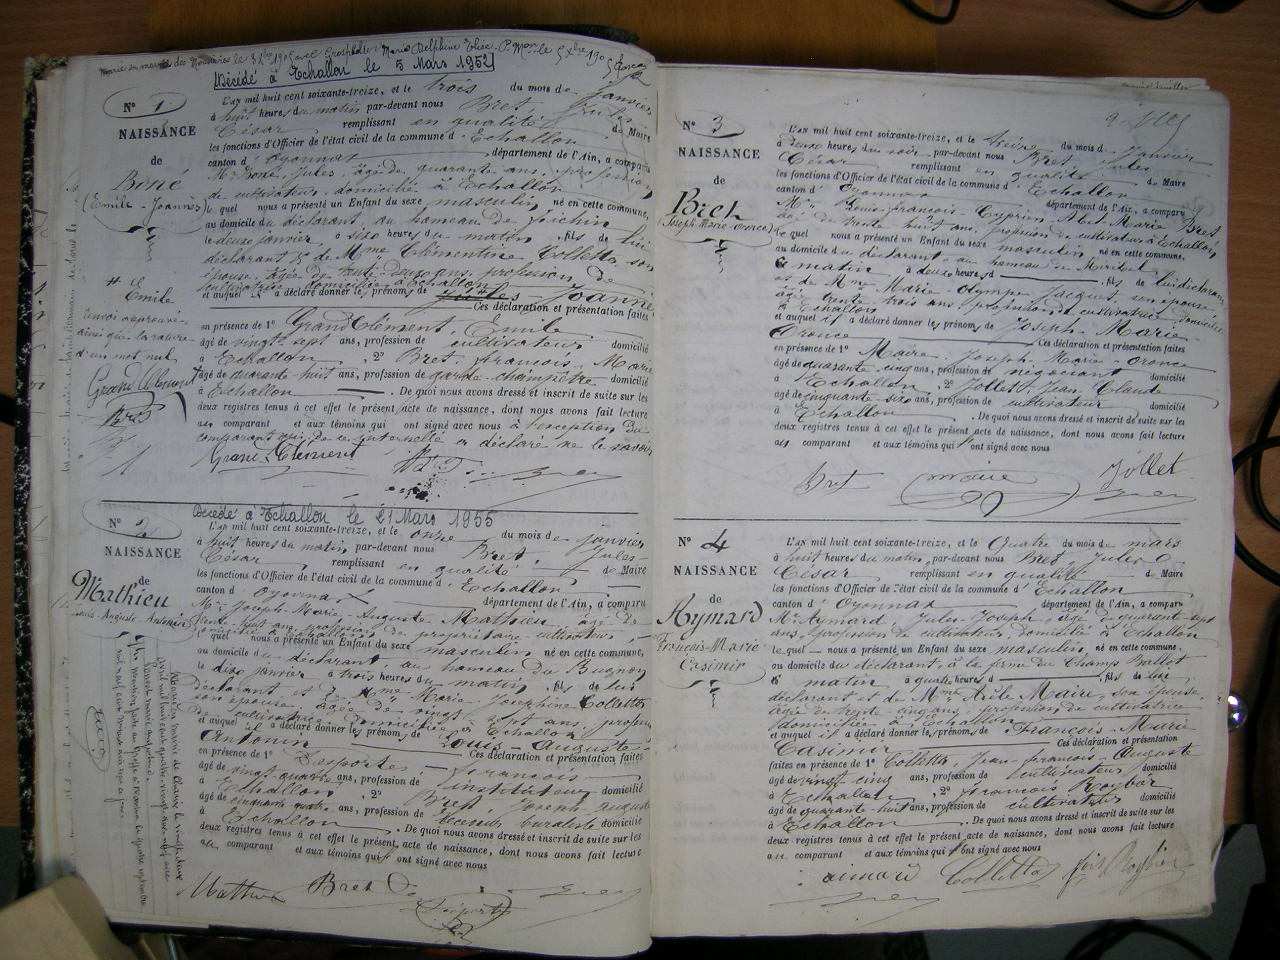 Décédé à Echallon le 5 Mars 1952
Nº 1
NAISSANCE
de
Boné
(Emile-Joannès)
L'an mil huit cent soixante-treize, et le trois du mois de janvier
à huit heures du matin par-devant nous Bret, Jules
César remplissant en qualité de Maire
les fonctions d'Officier de l'état civil de la commune d'Echallon
canton d'Oyonnax département de l'Ain, a comparu
Mr Boné, Jules âgé de quarante ans, profession
de cultivateur, domicilié à Echallon
le quel nous a présenté un Enfant du sexe masculin né en cette commune,
au domicile du déclarant, au hameau de
le deux janvier, à six heures du matin, fils de lui
déclarant & de Mme Clémentine Colletta son
épouse, âgée de trente-deux ans, profession de
cultivatrice domiciliée à Echallon
et auquel il a déclaré donner le prénom de Joannès
Ces déclaration et présentation faites
en présence de 1º Grand Clément, Emile
âgé de vingt sept ans, profession de cultivateur domicilié
à Echallon, 2º Bret, François, Marie
âgé de quarante huit ans, profession de garde-champêtre domicilié
à Echallon. De quoi nous avons dressé et inscrit de suite sur les
deux registres tenus à cet effet le présent acte de naissance, dont nous avons fait lecture
au comparant et aux témoins qui ont signé avec nous à l'exception du
comparant qui de ce interpellé a déclaré ne le savoir
Grand-Clément
# Emile
renvoi approuvé
ainsi que la rature
d'un mot nul,
Grand Clément
Bret
Nº 2
NAISSANCE
de
Mathieu
Louis Auguste Antonin
Décédé à Echallon le 21 Mars 1955
L'an mil huit cent soixante-treize, et le onze du mois de janvier
à huit heures du matin, par-devant nous Bret, Jules
César remplissant en qualité de Maire
les fonctions d'Officier de l'état civil de la commune d'Echallon
canton d'Oyonnax département de l'Ain, a comparu
Mr Joseph-Marie-Auguste Mathieu âgé de
trente huit ans, profession de propriétaire cultivateur,
domicilié à Echallon
lequel nous a présenté un Enfant du sexe masculin, né en cette commune,
au domicile du déclarant au hameau du Bugnon
le dix janvier à trois heures du matin, fils de lui
déclarant et de Mme Marie Joséphine Colletta
son épouse âgée de vingt-sept ans, profession
de cultivatrice domiciliée à Echallon
et auquel il a déclaré donner les prénoms de Louis-Auguste
Antonin Ces déclaration et présentation faites
en présence de 1º Desportes, François
âgé de vingt quatre ans, profession d'instituteur domicilié
à Echallon, 2º Bret, Joseph Auguste
âgé de cinquante quatre ans, profession de receveur buraliste domicilié
à Echallon. De quoi nous avons dressé et inscrit de suite sur les
deux registres tenus à cet effet le présent acte de naissance, dont nous avons fait lecture
au comparant et aux témoins qui ont signé avec nous
Mathieu Bret Desportes
Nº 3
NAISSANCE
de
Bret
Joseph-Marie-Oronce
L'an mil huit cent soixante-treize, et le treize du mois de janvier
à deux heures du soir par-devant nous Bret Jules
César remplissant en qualité de Maire
les fonctions d'Officier de l'état civil de la commune d'Echallon
canton d'Oyonnax département de l'Ain, a comparu
Mr Louis-François-Cyprien Abel-Marie Bret
âgé de trente huit ans, profession de cultivateur à Echallon,
lequel nous a présenté un Enfant du sexe masculin né en cette commune,
au domicile du déclarant au hameau de
ce matin à deux heures, fils de lui déclarant
et de Mme Marie Olympe Jacquet, son épouse,
âgée trente trois ans, profession de cultivatrice domiciliée
Echallon
et auquel il a déclaré donner les prénoms de Joseph-Marie
Oronce Ces déclaration et présentation faites
en présence de 1º Maire, Joseph-Marie-Oronce
âgé de quarante cinq ans, profession de négociant domicilié
à Echallon, 2º Jollet Jean Claude
âgé de cinquante six ans, profession de cultivateur domicilié
à Echallon. De quoi nous avons dressé et inscrit de suite sur les
deux registres tenus à cet effet le présent acte de naissance, dont nous avons fait lecture
au comparant et aux témoins qui ont signé avec nous
Bret maire Jollet
Nº 4
NAISSANCE
de
Aymard
François-Marie
Casimir
L'an mil huit cent soixante-treize, et le Quatre du mois de mars
à huit heures du matin, par-devant nous Bret, Jules
César remplissant en qualité de Maire
les fonctions d'Officier de l'état civil de la commune d'Echallon
canton d'Oyonnax département de l'Ain, a comparu
Mr Aymard, Jules-Joseph, âgé de quarante-sept
ans, profession de cultivateur, domicilié à Echallon
lequel nous a présenté un Enfant du sexe masculin, né en cette commune,
au domicile du déclarant, à la ferme du Champ Ballot
ce matin à quatre heures, fils de lui
déclarant et de Mme Maire, son épouse
âgée de trente cinq ans, profession de cultivatrice
domiciliée à Echallon
et auquel il a déclaré donner les prénoms de François Marie
Casimir Ces déclaration et présentation
faites en présence de 1º Colletta, Jean-François-Auguste
âgé de vingt cinq ans, profession de cultivateur domicilié
à Echallon, 2º François Roybier
âgé de quarante huit ans, profession de cultivateur domicilié
à Echallon. De quoi nous avons dressé et inscrit de suite sur les
deux registres tenus à cet effet le présent acte de naissance, dont nous avons fait lecture
au comparant et aux témoins qui ont signé avec nous
aimard Colletta